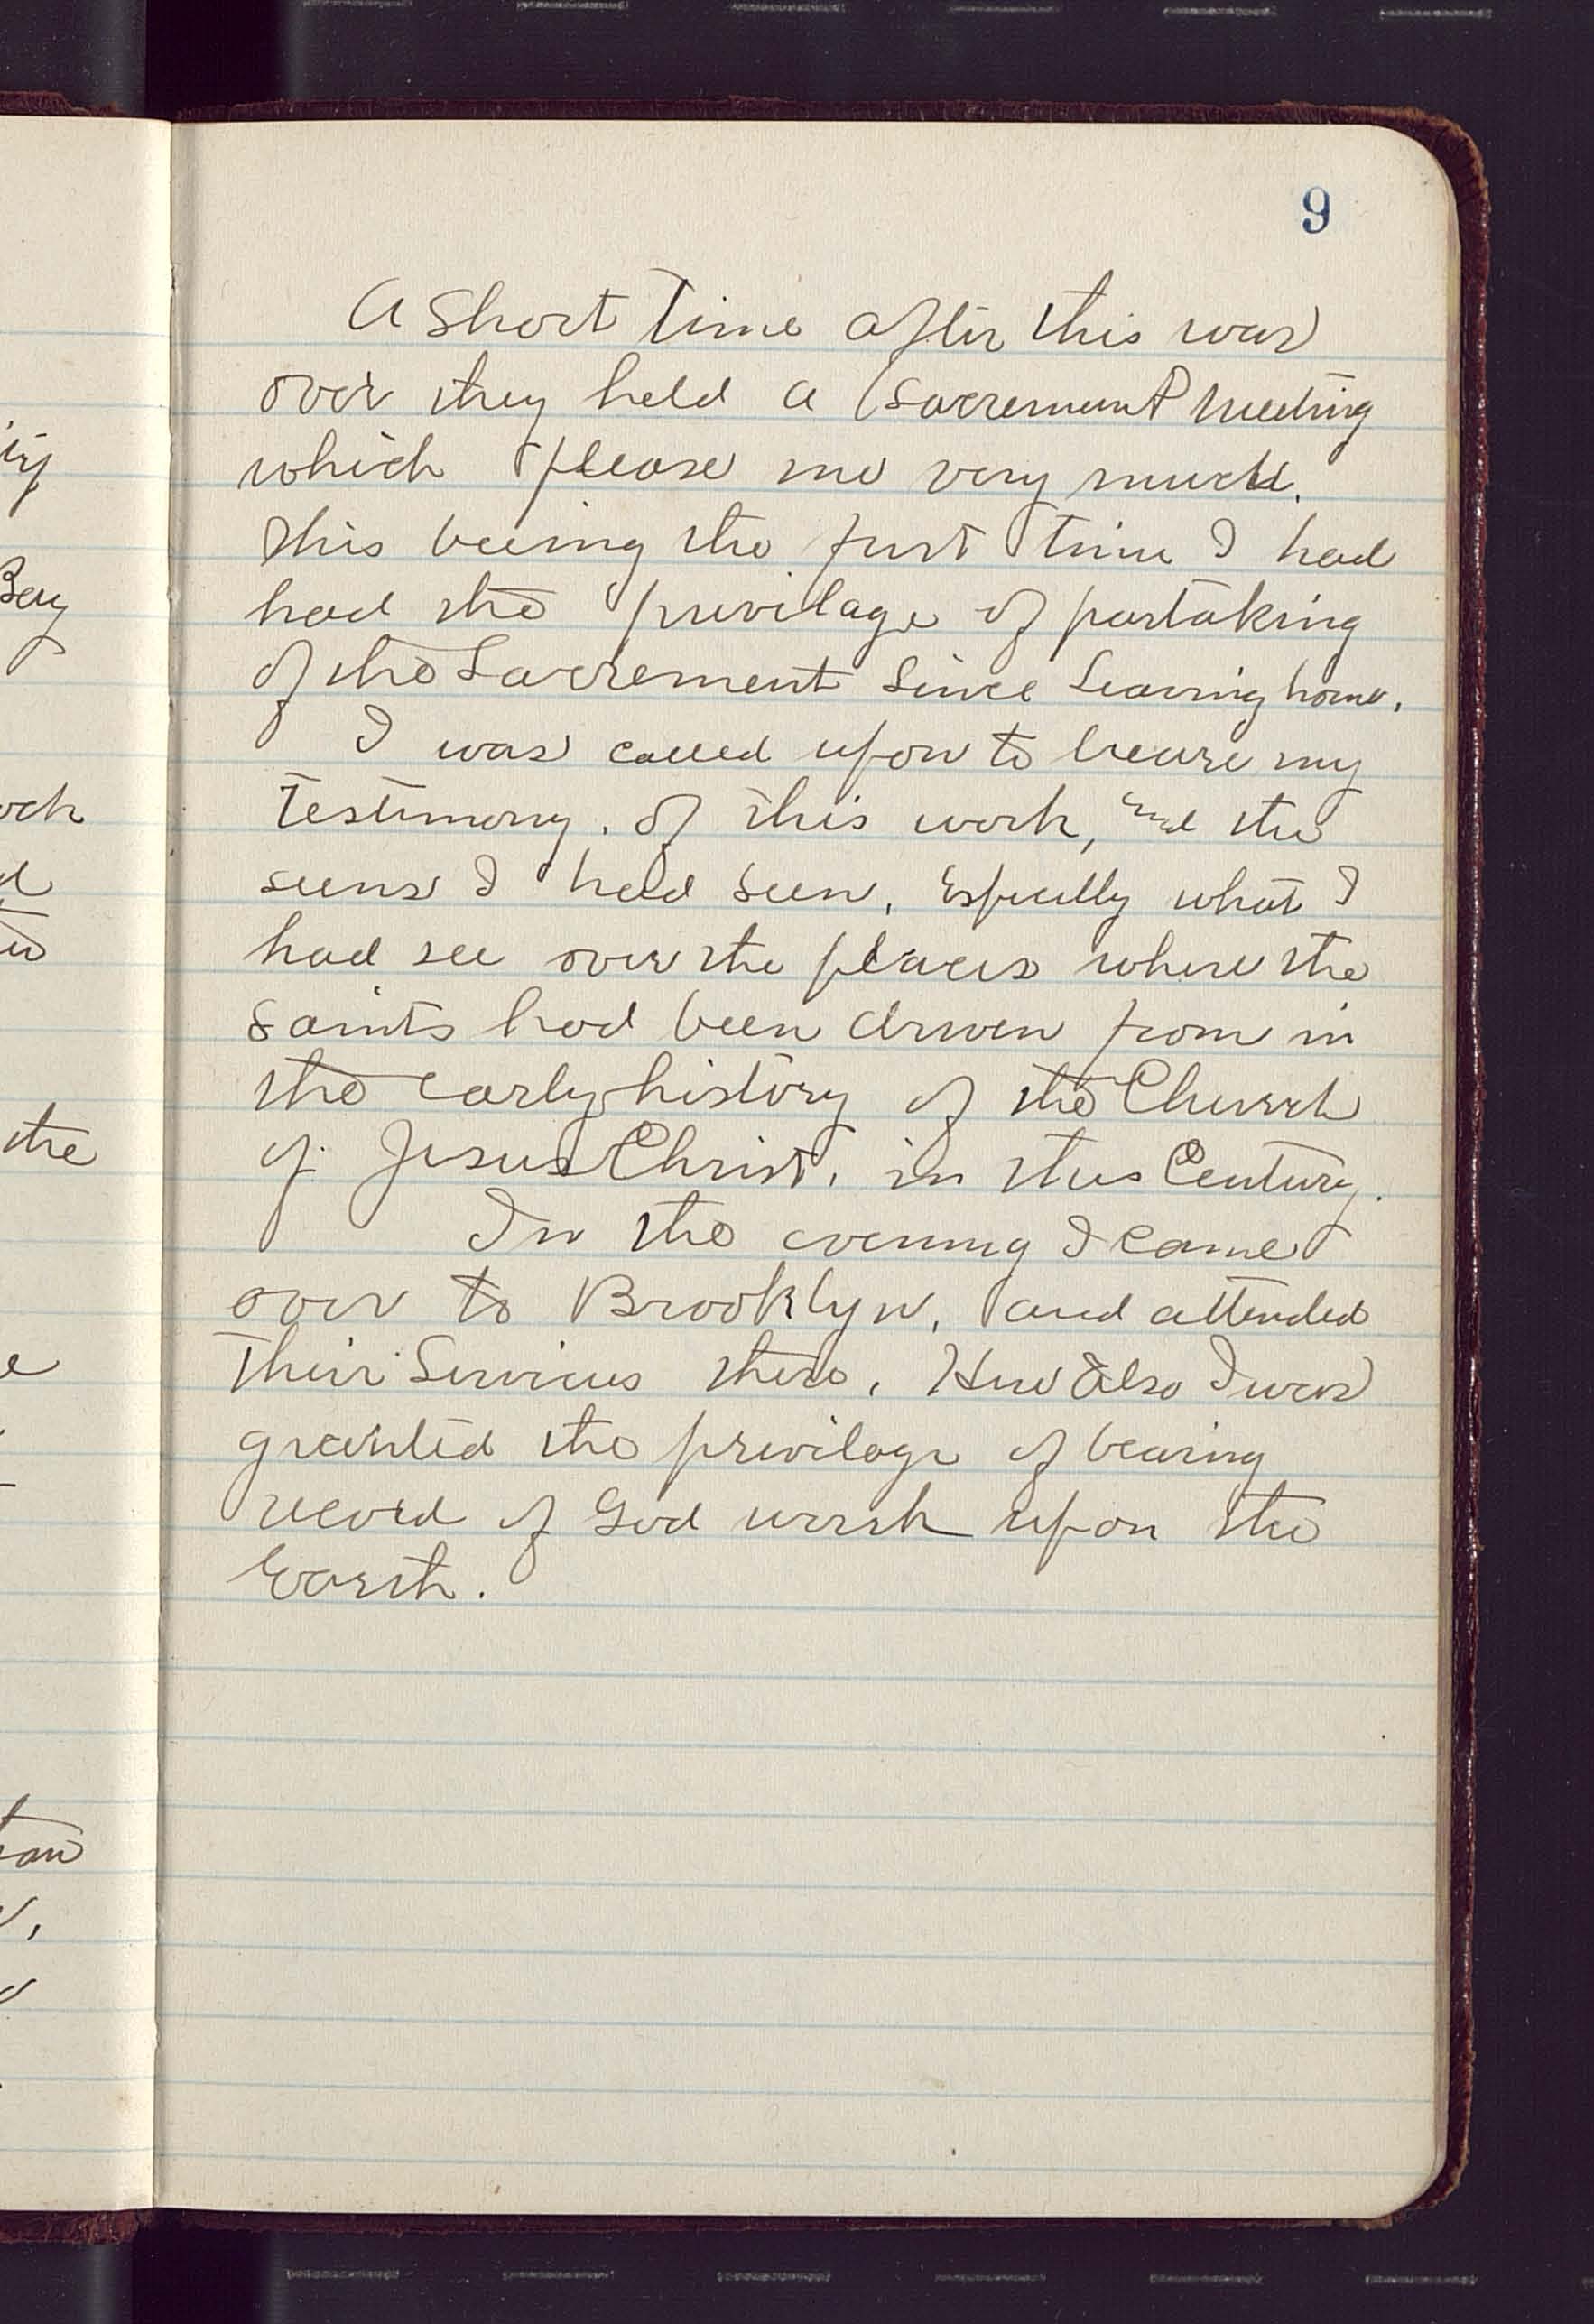 9
A Short Time after this was
over they held a Sacrement Meeting
which please me very much.
This beeing the first time I had
had the privilage of partaking
of the Sacrement Since Leaving home.
I was called upon to beare my
Testimony. of this work, and the
seens I had seen, Especilly what I
had see over the places where the
Saints had been driven from in
the early history of the Church
of Jesus Christ. in this Century.
In the evening I came
over to Brooklyn, and attended
Their Services there. Here also I was
granted the privilage of bearing
record of God work upon the
Earth.
ity
Bay
the